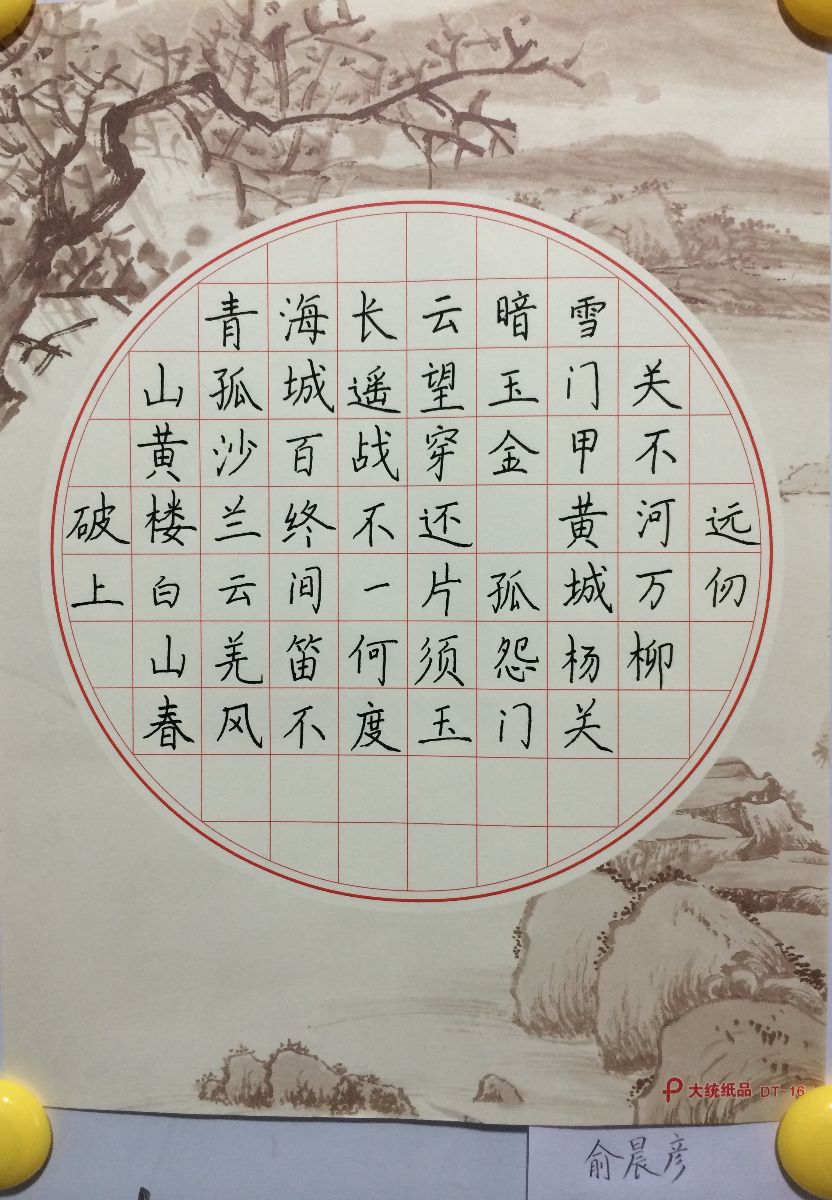 青海长云暗雪
山孤城遥望玉门关
黄沙百战穿金甲不
破楼兰终不还 黄河远
上白云间一片孤城万仞
山羌笛何须怨杨柳
春风不度玉门关
大统纸品 DT-16
俞晨彦